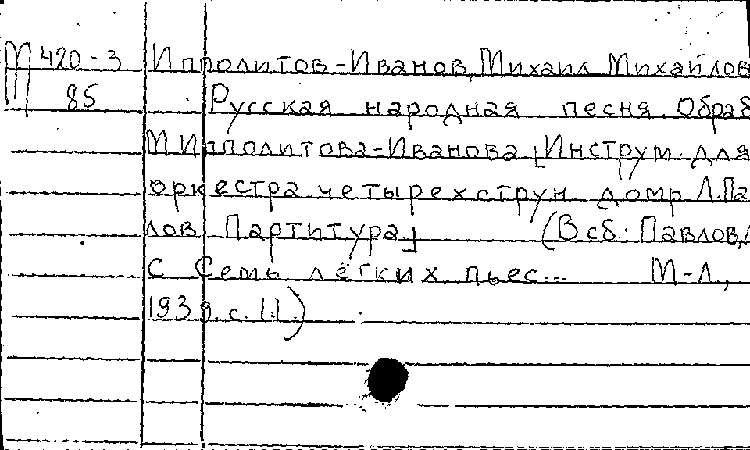 М 420-3 Ипполитов-Иванов, Михаил Михайлов
85 Русская народная песня. Обраб
М Ипполитова-Иванова [Инструм. для
оркестра четырехструн домр Л.Па
лов Партитура] (В сб: Павлов,
С Семь лёгких пьес... М-Л.,
1939. с. 11)